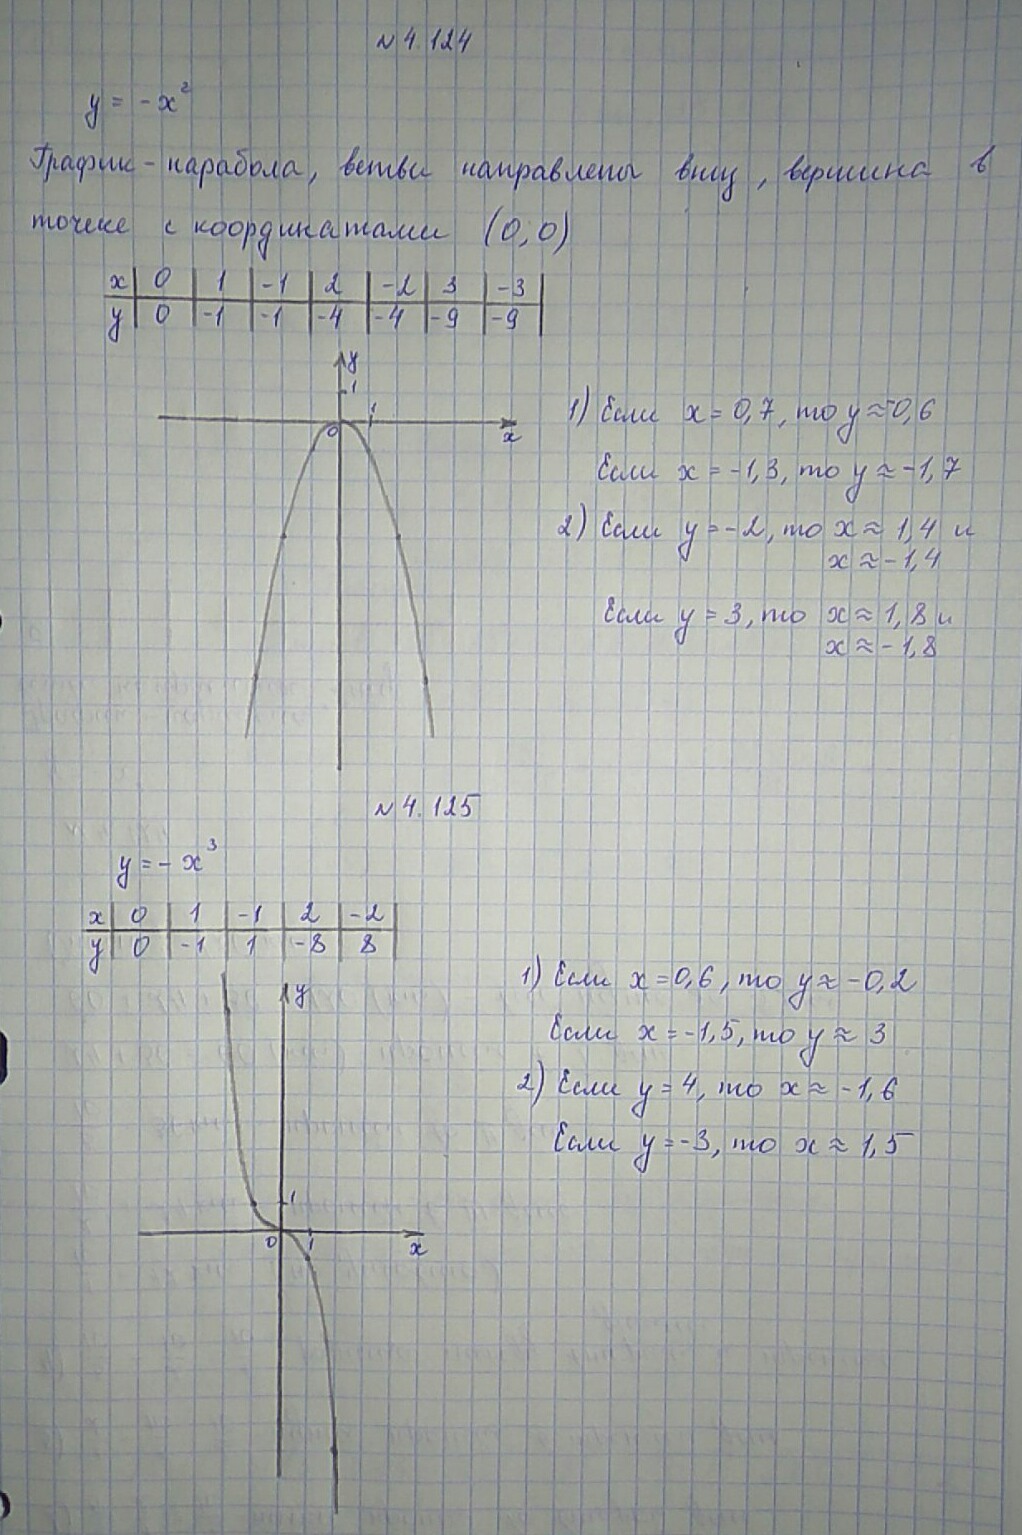 № 4.124
y = -x²
График - парабола, ветви направлены вниз, вершина в
точке с координатами (0; 0)
x | 0 | 1 | -1 | 2 | -2 | 3 | -3
y | 0 | -1 | -1 | -4 | -4 | -9 | -9
y
1
1
0
x
1) Если x = 0,7, то y ≈ -0,6
Если x = -1,3, то y ≈ -1,7
2) Если y = -2, то x ≈ 1,4 и
x ≈ -1,4
Если y = 3, то x ≈ 1,8 и
x ≈ -1,8
№ 4.125
y = - x³
x | 0 | 1 | -1 | 2 | -2
y | 0 | -1 | 1 | -8 | 8
y
1
0
1
x
1) Если x = 0,6, то y ≈ -0,2
Если x = -1,5, то y ≈ 3
2) Если y = 4, то x ≈ -1,6
Если y = -3, то x ≈ 1,5